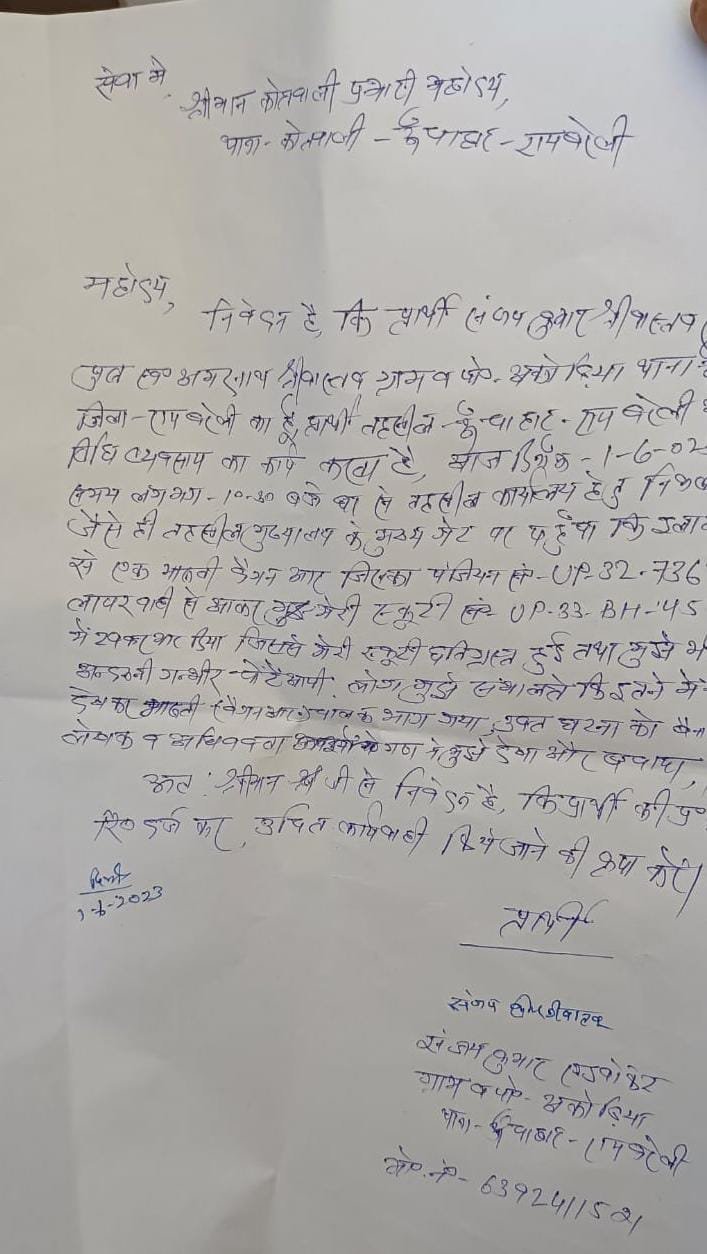 सेवा मे,
श्रीमान कोतवाली प्रभारी महोदय,
थाना- कोतवाली - ऊँचाहार - रायबरेली
महोदय,
निवेदन है, कि प्रार्थी संजय कुमार श्रीवास्तव
पुत्र स्व० अमरनाथ श्रीवास्तव ग्राम व पो०- अकोढ़िया थाना
जिला- रायबरेली का हूँ, प्रार्थी तहसील - ऊँचाहार - रायबरेली
विधि व्यवसाय का कार्य करता है, आज दिनाँक - 1-6-02
समय लगभग - 10-30 बजे घर से तहसील कार्यालय हेतु
जैसे ही तहसील मुख्यालय के मुख्य गेट पर पहुँचा कि
से एक मारुती वैगन आर जिसका पंजियन सं०- UP-32-736
लापरवाही से आकर मेरी स्कूटी सं०- UP-33-BH-45
में टक्कर मार दिया जिससे मेरी स्कूटी क्षतिग्रस्त हुई तथा मुझे
अन्दरुनी गम्भीर चोटें आयी. लोग मुझे संभालते कि इतने में
देखकर मारुती वैगन आर चालक भाग गया, उक्त घटना को
लेखक व अधिवक्ता गण ने मुझे देखा और बचाया,
अतः श्रीमान जी से निवेदन है, कि प्रार्थी की
रि० दर्ज कर, उचित कार्यवाही किये जाने की कृपा करें।
1-6-2023
प्रार्थी
संजय श्रीवास्तव
संजय कुमार एडवोकेट
ग्राम व पो०- अकोढ़िया
थाना- ऊँचाहार - रायबरेली
मो०.नं०-